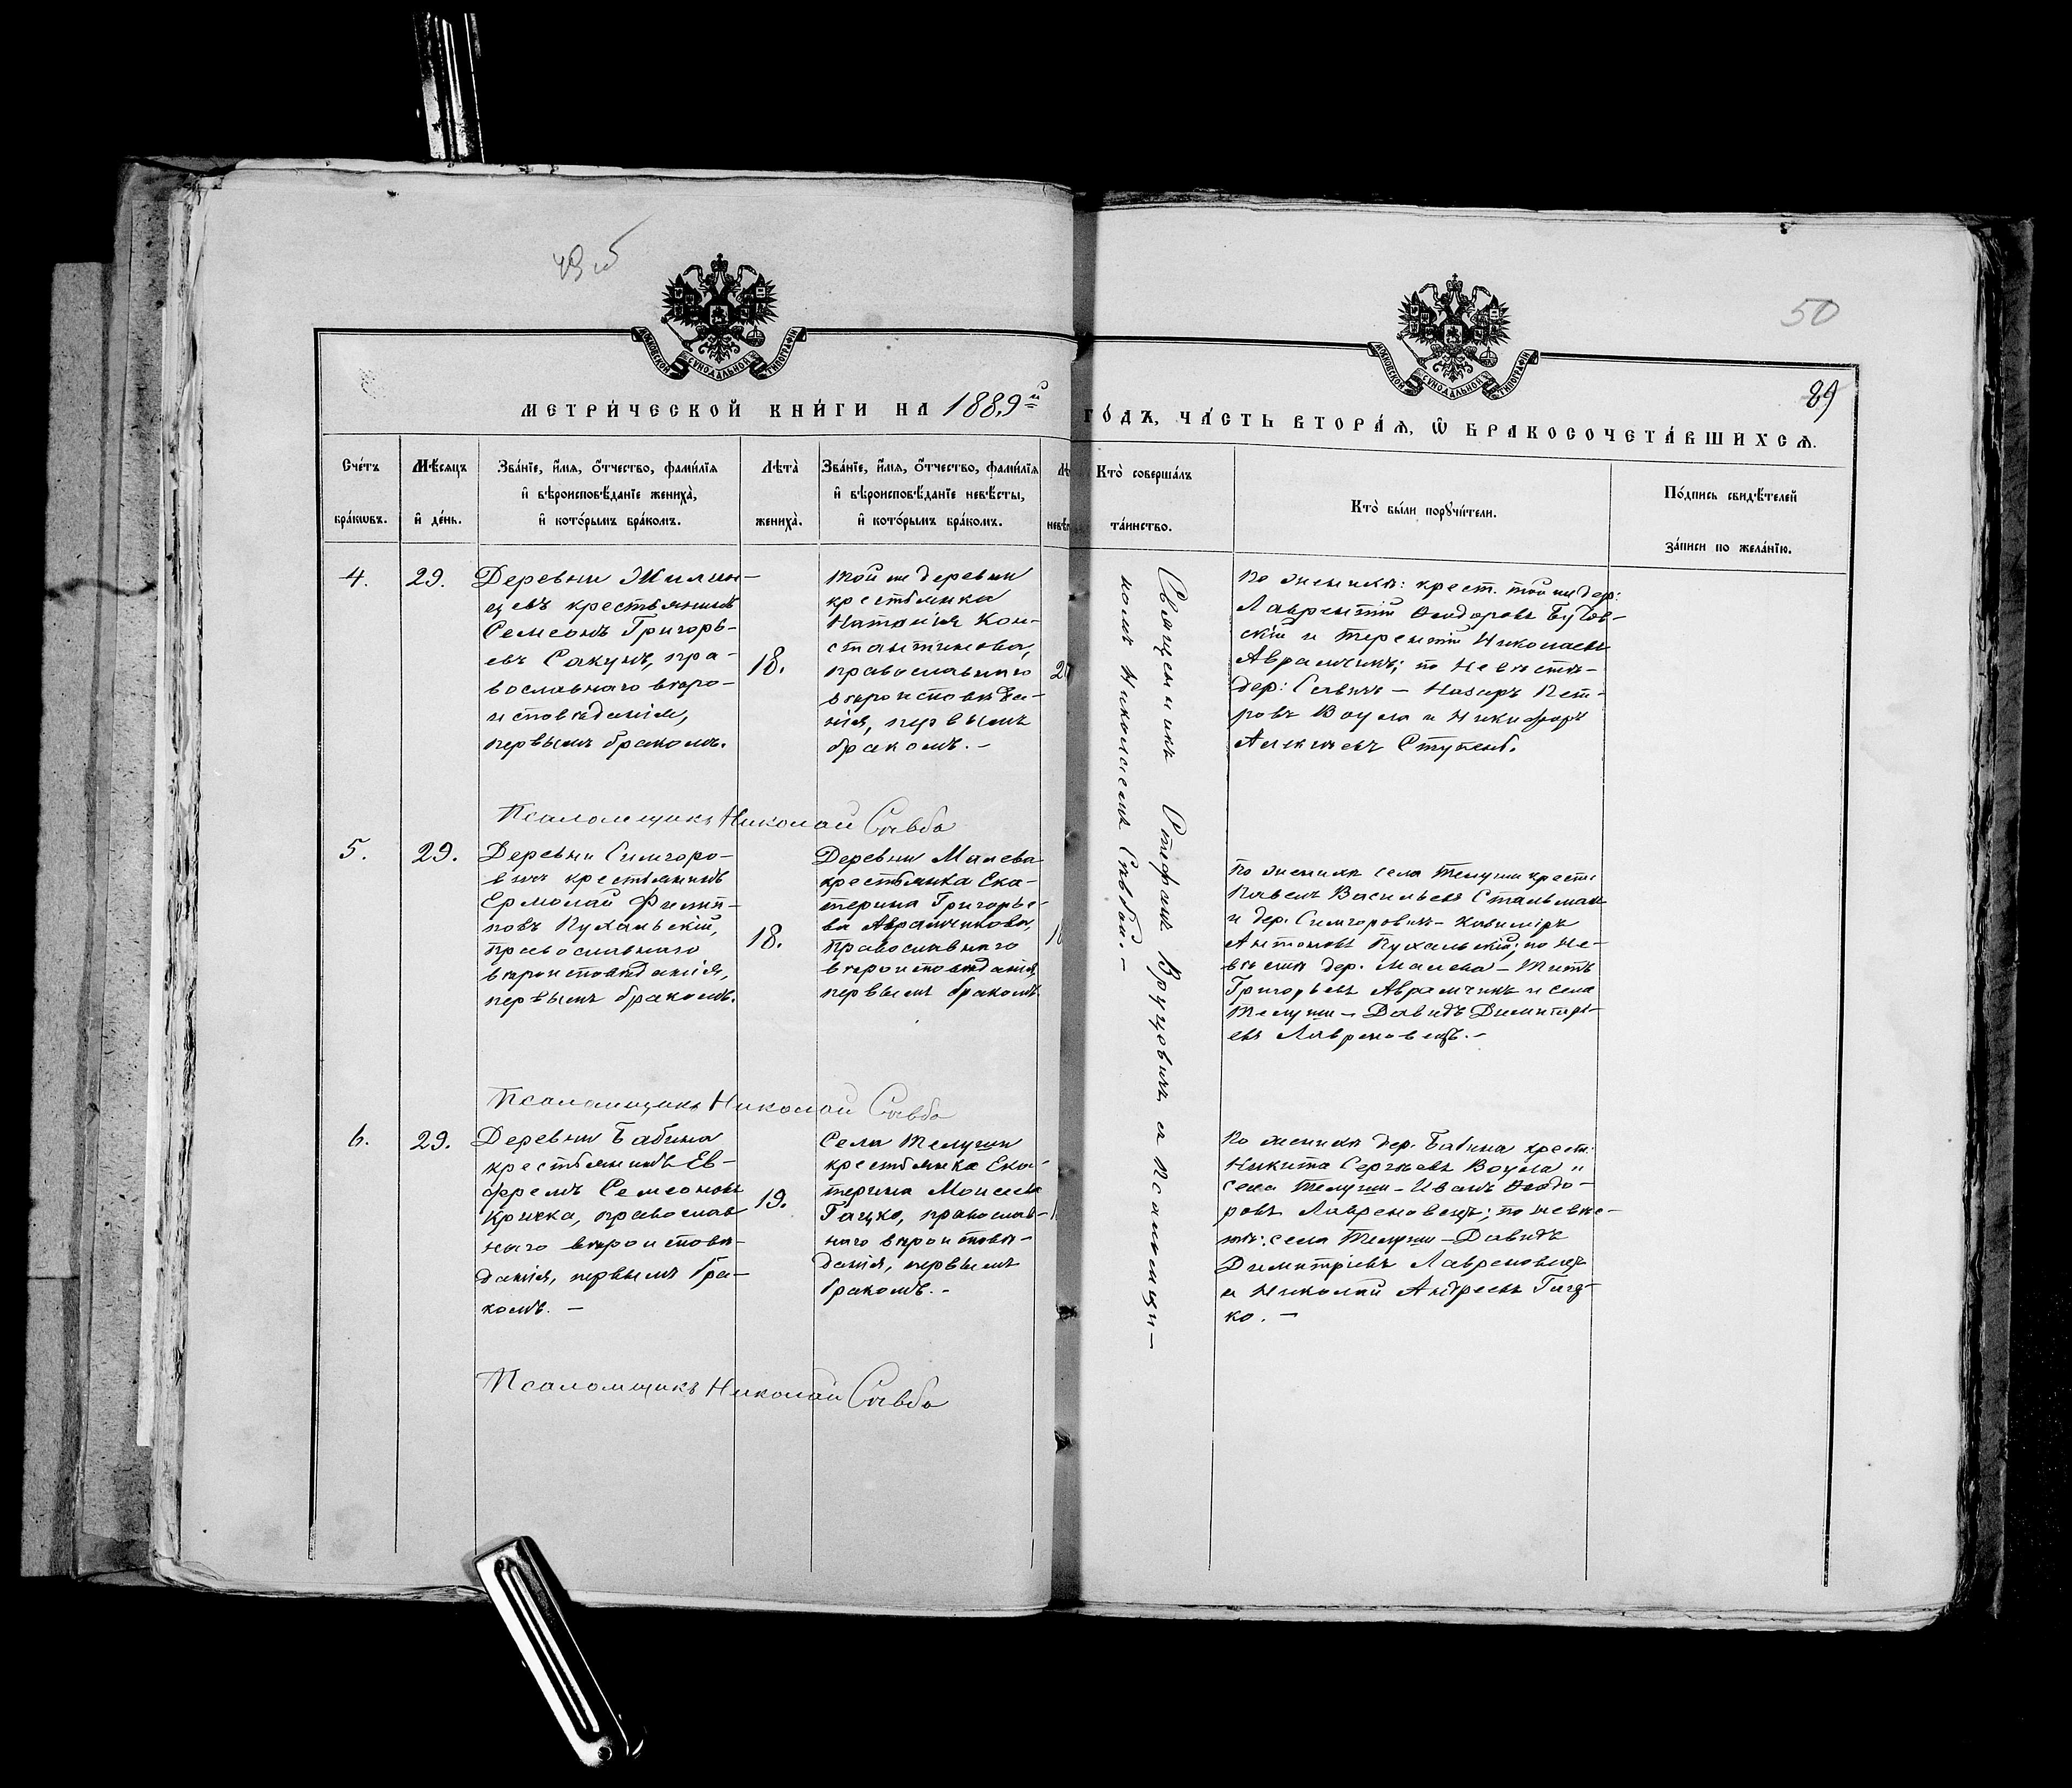 49 об
50
89
МОСКОВСКОЙ СѴНОДАЛЬНОЙ ТИПОГРАФІИ
МОСКОВСКОЙ СѴНОДАЛЬНОЙ ТИПОГРАФІИ
МЕТРИ́ЧЕСКОЙ КНИ́ГИ НА 1889й ГО́ДЪ, ЧА́СТЬ ВТОРА́Ѧ, Ѽ БРАКОСОЧЕТА́ВШИХСѦ.
Сче́тъ
бра́кѡвъ.
Мѣ́сяцъ
и҆ де́нь.
Зва́нїе, и҆́мя, ѻ҆́тчество, фами́лїя
и҆ вѣроисповѣ́данїе жениха̀,
и҆ кото́рымъ бра́комъ.
Лѣта̀
жениха̀.
Зва́нїе, и҆́мя, ѻ҆́тчество, фами́лїя
и҆ вѣроисповѣ́данїе невѣ́сты,
и҆ кото́рымъ бра́комъ.
Лѣ
невѣ
Кто̀ соверша́лъ
та́инство.
Кто̀ бы́ли порꙋчи́тели.
По́дпись свидѣ́телей
за́писи по жела́нїю.
4.
29.
Деревни Жилин-
цевъ крестьянинъ
Семеонъ Григорь-
евъ Сакунъ, пра-
вославнаго вѣро-
исповѣданія,
первымъ бракомъ.
18.
той же деревни
крестьянка
Наталія Кон-
стантинова,
православнаго
вѣроисповѣда-
нія, первымъ
бракомъ. -
20
Священникъ Стефанъ Вруцевичъ съ псаломщи-
комъ Николаемъ Саббой. -
По женихѣ: крест. той же дер:
Лаврентій Ѳеодоровъ Бутов-
скій и Терентій Николаевъ
Аврамчикъ; по невѣстѣ-
дер: Савичъ - Назаръ Пет-
ровъ Воула и Никифоръ
Алексѣевъ Ступень.
Псаломщикъ Николай Савба
5.
29.
Деревни Симгоро-
вичъ крестьянинъ
Ермолай Филип-
повъ Пухальскій,
православнаго
вѣроисповѣданія,
первымъ бракомъ.
18.
Деревни Малева
крестьянка Ека-
терина Григорье-
ва Аврамчикова,
православнаго
вѣроисповѣданія,
первымъ бракомъ
18
По женихѣ села Телуши крест:
Павелъ Васильевъ Стальмахъ
и дер. Симгоровичъ - Казиміръ
Антоновъ Пухальскій; по не-
вѣстѣ дер. Малева - Титъ
Григорьевъ Аврамчикъ и села
Телуши - Давидъ Димитрі-
евъ Лавреновецъ. -
Псаломщикъ Николай Савба
6.
29.
Деревни Бабина
крестьянинъ Ев-
фремъ Семеоновъ
Кричка, православ
наго вѣроисповѣ-
данія, первымъ бра-
комъ. -
19.
Села Телуши
крестьянка Ека-
терина Моисеева
Гацко, православ-
наго вѣроисповѣ-
данія, первымъ
бракомъ. -
По женихѣ дер. Бабина крест:
Никита Сергѣевъ Воула и
села Телуши - Иванъ Ѳеодо-
ровъ Лавреновецъ; по невѣс-
тѣ: села Телуши - Давидъ
Димитріевъ Лавреновецъ
и Николай Андреевъ Гац-
ко. -
Псаломщикъ Николай Савба